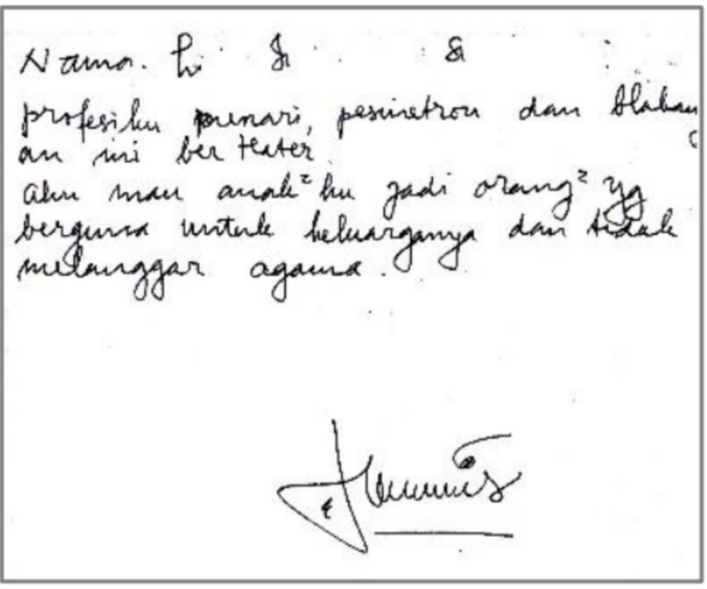 Nama.
profesiku penari, pesinetron dan blakang
an ini ber teater
aku mau anak² ku jadi orang² yg
berguna untuk keluarganya dan tidak
melanggar agama.